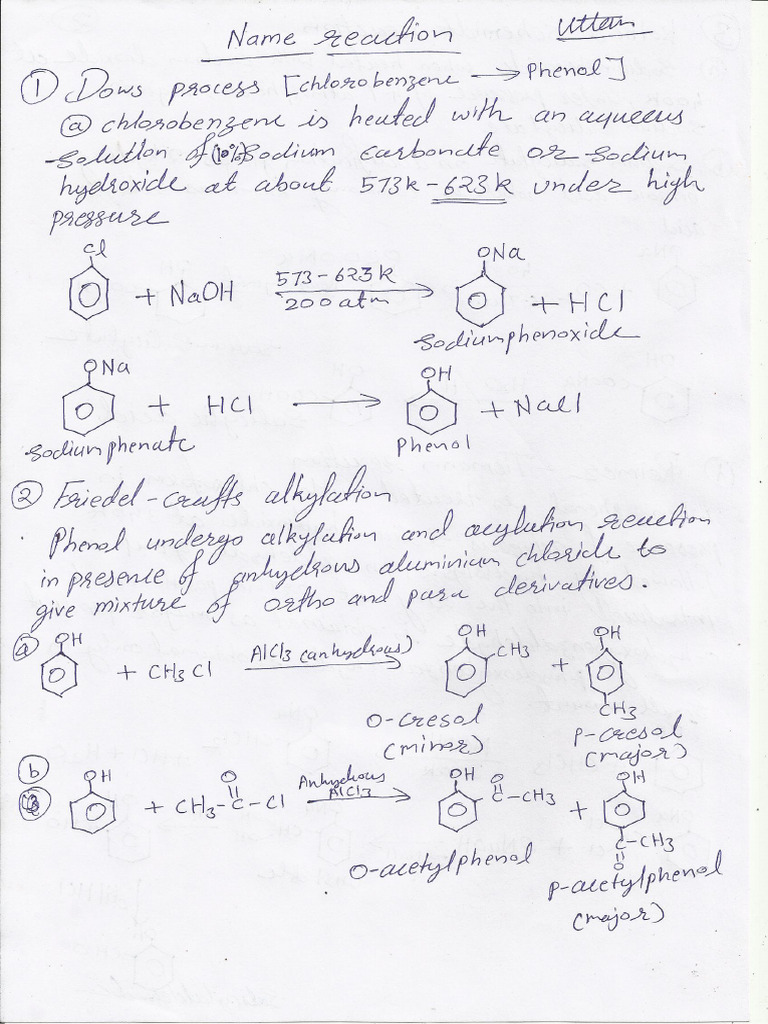 Name reaction
Uttam
① Dows process [chlorobenzene → Phenol]
ⓐ chlorobenzene is heated with an aqueous
solution of (10%) Sodium carbonate or sodium
hydroxide at about 573k - 623k under high
pressure
Cl ONa
+ NaOH 573-623k 200 atm → + HCl
Sodiumphenoxide
ONa OH
+ HCl → + NaCl
Sodiumphenate Phenol
② Friedel-crafts alkylation
Phenol undergo alkylation and acylation reaction
in presence of anhydrous aluminium chloride to
give mixture of ortho and para derivatives.
ⓐ OH + CH3Cl AlCl3 (anhydrous) → OH CH3 + OH CH3
O-cresol p-cresol
(minor) (major)
ⓑ
OH + CH3-C-Cl O Anhydrous AlCl3 → OH C-CH3 O + OH C-CH3 O
O-acetylphenol p-acetylphenol
(major)